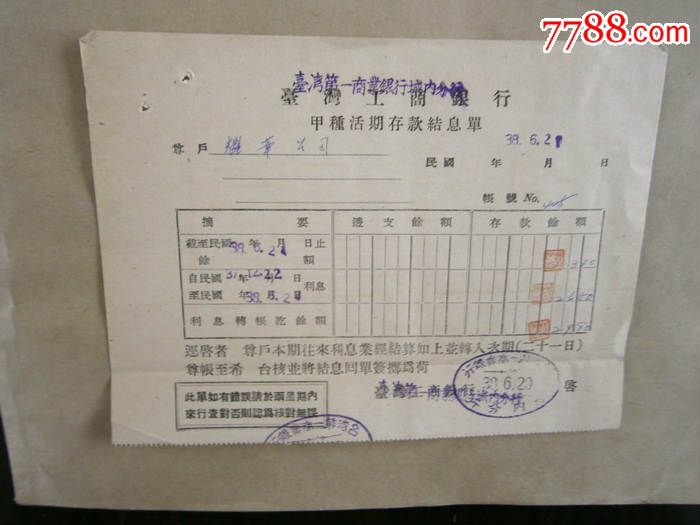 7788.com
臺灣第一商業銀行城內分行
臺灣工商銀行
甲種活期存款結息單
39.6.21
尊戶 耀華公司
民國 年 月 日
帳號No.
摘要 透支餘額 存款餘額
截至民國39年6月21日止
餘額
自民國 年12月22日
至民國39年6月21日 利息
利息轉帳訖餘額
逕啓者 尊戶本期往來利息業經結算如上並轉入本期(二十一日)
尊帳至希 台核並將結息回單簽擲爲荷
臺灣第一商業銀行城內分行 啓
39.6.20
此單如有錯誤請於兩星期內
來行查對否則認爲核對無誤